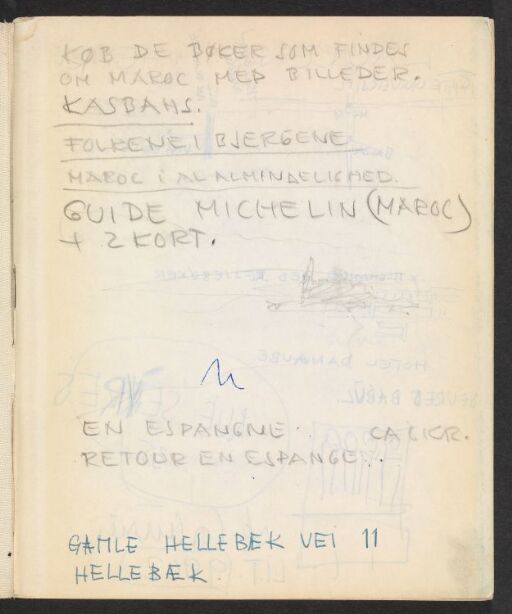 KØB DE BØKER SOM FINDES
OM MAROC MED BILLEDER.
KASBAHS.
FOLKENE I BJERGENE
MAROC I AL ALMINDELIGHED.
GUIDE MICHELIN (MAROC)
+ 2 KORT.
EN ESPANGNE.
RETOUR EN ESPANGE..
GAMLE HELLEBÆK VEI 11
HELLEBÆK.